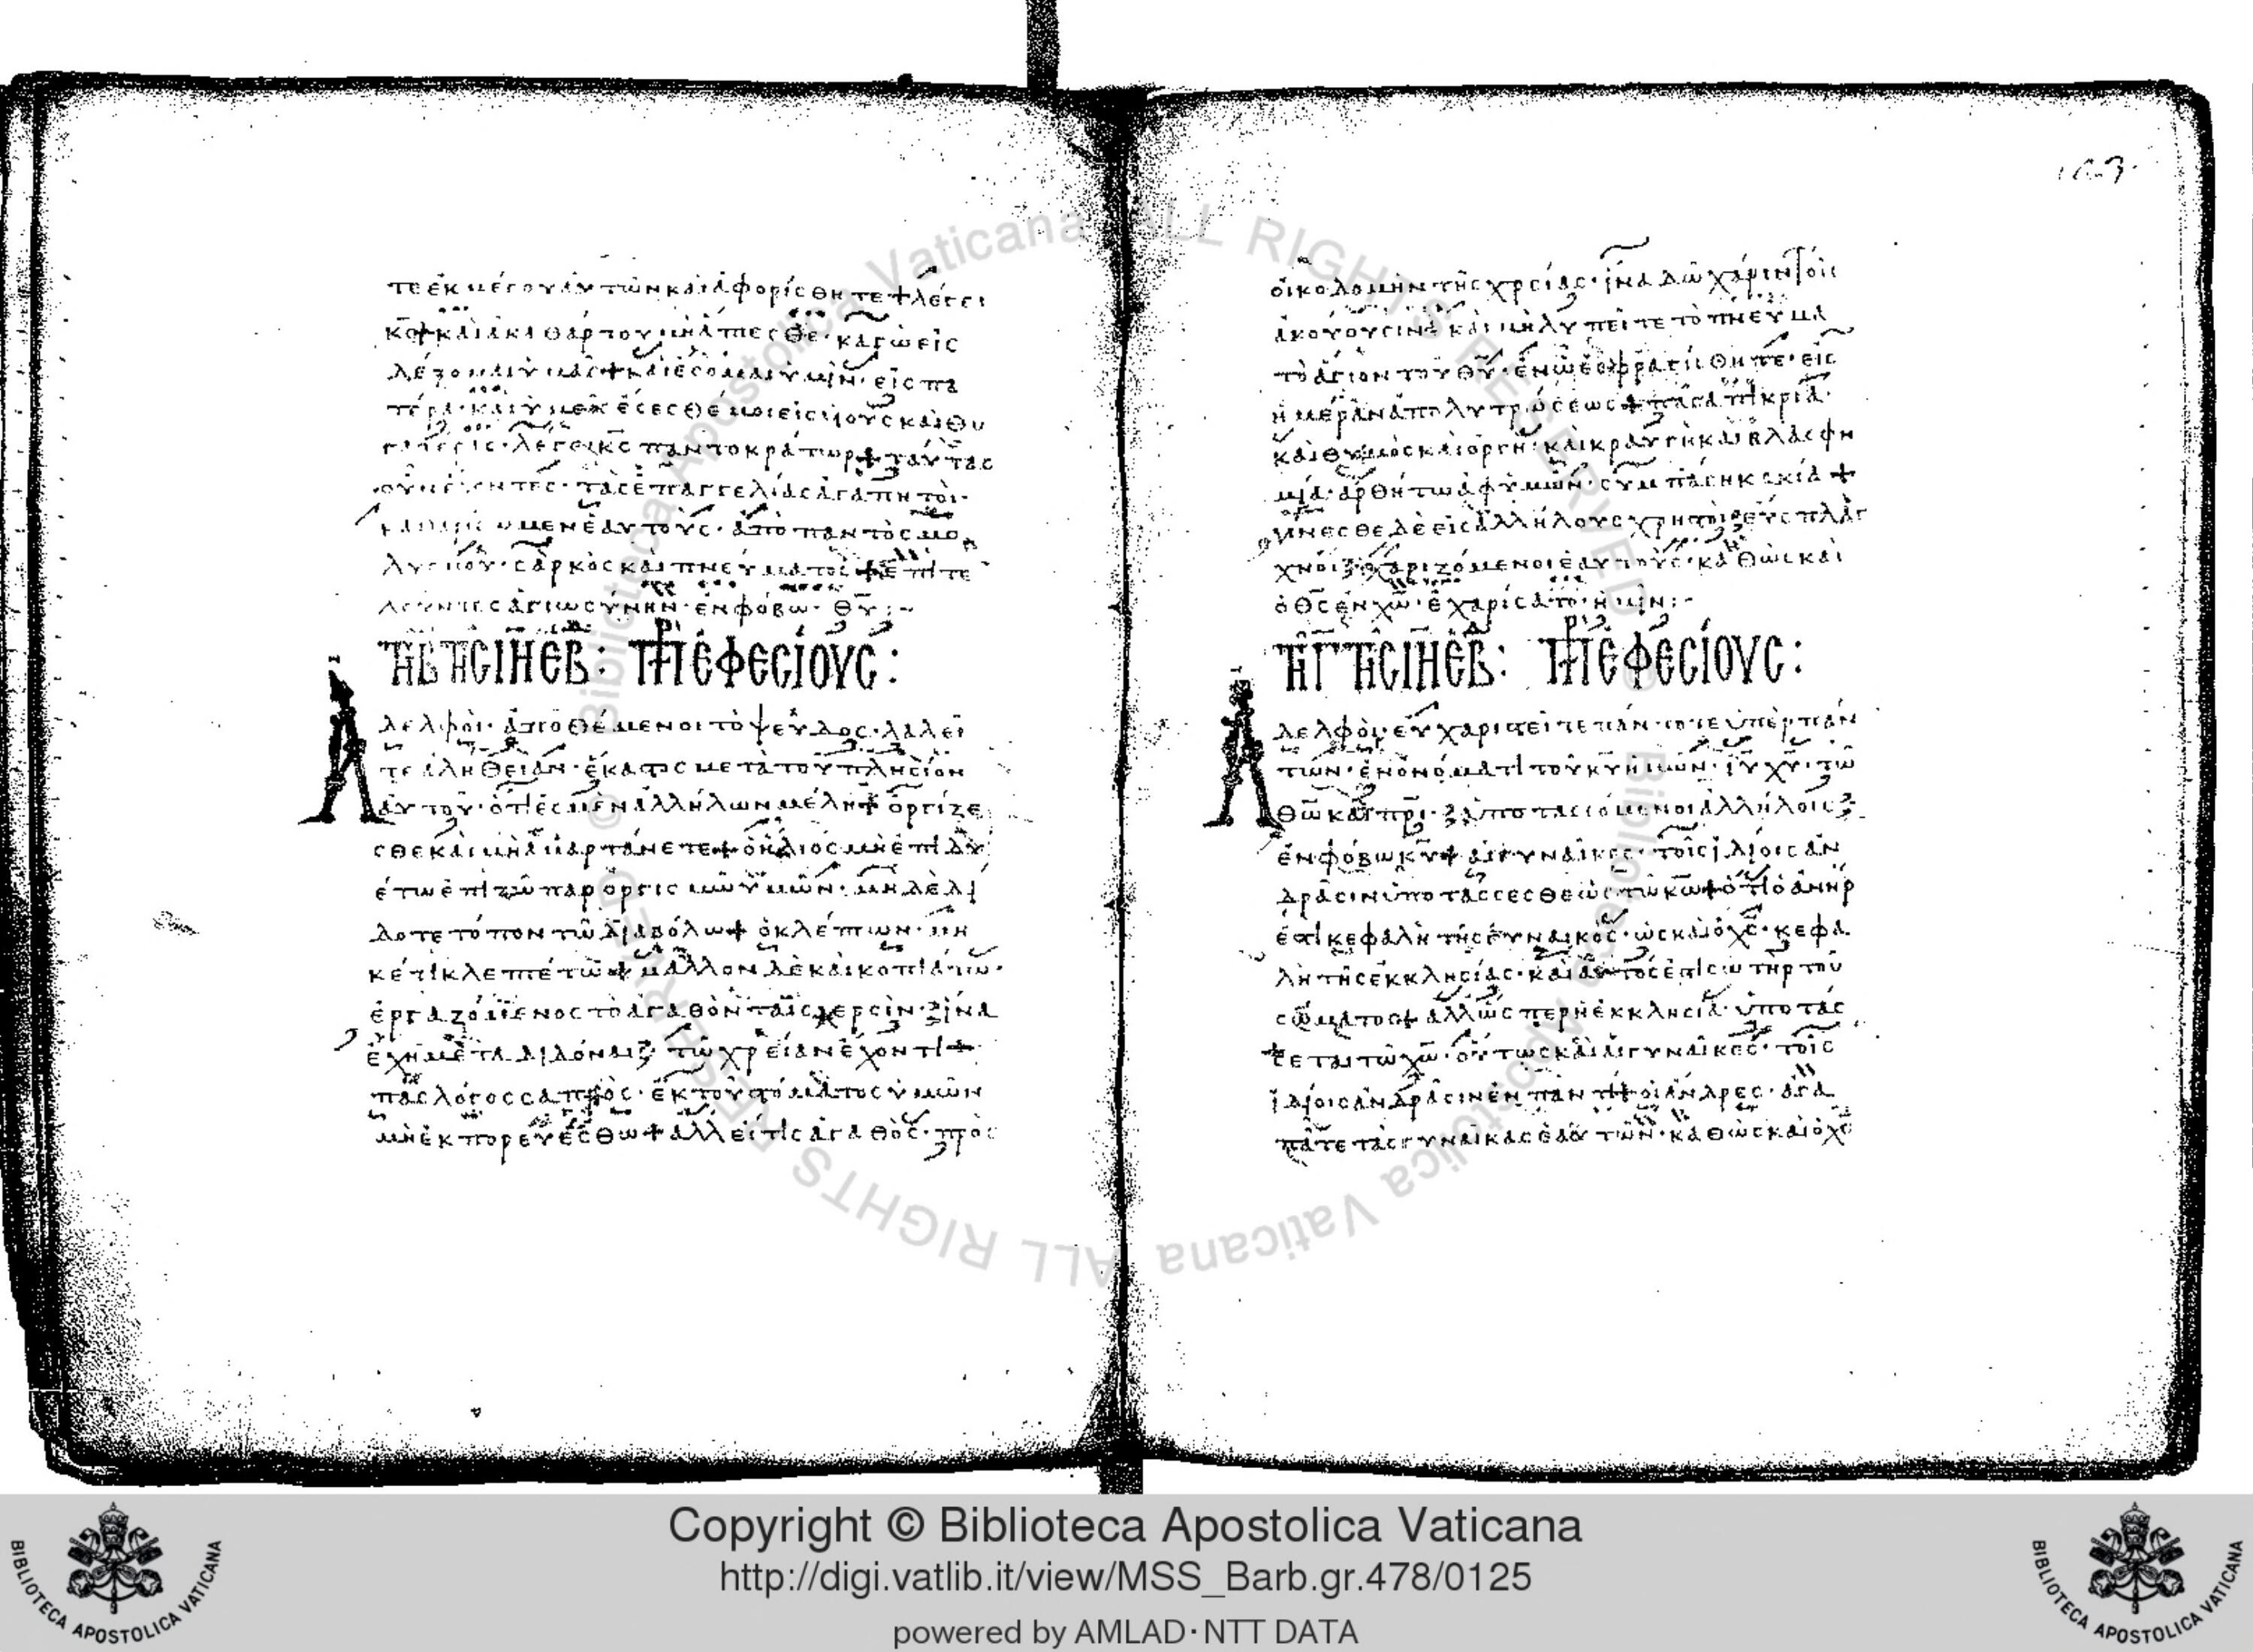 τε ἐκ μέσου αὐτῶν καὶ ἀφορίσθητε + λέγει
κ̅ς̅ + καὶ ἀκαθάρτου μὴ ἅπτεσθε · καγὼ εἰς
δέξομαι ὑμᾶς + καὶ ἔσομαι ὑμῖν · εἰς πα
τέρα · καὶ ὑμεῖς ἔσεσθέ μοι εἰς υἱοὺς καὶ θυ
γατέρας · λέγει κ̅ς̅ παντοκράτωρ + ταύτας
οὖν ἔχοντες · τὰς ἐπαγγελίας ἀγαπητοὶ ·
καθαρίσωμεν ἑαυτοὺς · ἀπὸ παντὸς μο
λυσμοῦ · σαρκὸς καὶ πνεύματος + ἐπιτε
λοῦντες ἁγιωσύνην · ἐν φόβω · θ̅υ̅ :-
ΤΗ Β ΤΗΣ ΙΗ ΕΒΔ : ΠΡ ΕΦΕΣΙΟΥΣ :
Ἀδελφοὶ · ἀποθέμενοι τὸ ψεῦδος · λαλεῖ
τε ἀλήθειαν · ἕκαστος μετὰ τοῦ πλησίον
αὐτοῦ · ὅτι ἐσμὲν ἀλλήλων μέλη + ὀργίζε
σθε καὶ μὴ ἁμαρτάνετε + ὁ ἥλιος μὴ ἐπιδυ
έτω ἐπὶ τῶ παροργισμῶ ὑμῶν · μὴ δὲ δί
δοτε τόπον τῶ διαβόλω + ὁ κλέπτων · μη
κέτι κλεπτέτω + μᾶλλον δὲ καὶ κοπιάτω ·
ἐργαζόμενος τὸ ἀγαθὸν ταῖς χερσὶν · ἵνα
ἔχη μεταδιδόναι τῶ χρείαν ἔχοντι +
πᾶς λόγος σαπρὸς · ἐκ τοῦ στόματος ὑμῶν
μὴ ἐκπορευέσθω + ἀλλ' εἴ τις ἀγαθὸς · πρὸς
οἰκοδομὴν τῆς χρείας · ἵνα δῶ χάριν τοῖς
ἀκούουσιν + καὶ μὴ λυπεῖτε τὸ πνεῦμα
τὸ ἅγιον τοῦ θ̅υ̅ · ἐν ὧ ἐσφραγίσθητε · εἰς
ἡμέραν ἀπολυτρώσεως + πᾶσα πικρία ·
καὶ θυμὸς καὶ ὀργὴ · καὶ κραυγὴ καὶ βλασφη
μία · ἀρθήτω ἀφ' ὑμῶν · σὺμ πάση κακία +
γίνεσθε δὲ εἰς ἀλλήλους χρηστοὶ εὔσπλαγ
χνοι χαριζόμενοι ἑαυτοῖς · καθὼς καὶ
ὁ θ̅ς̅ ἐν χ̅ω̅ · ἐχαρίσατο · ἡμῖν :-
ΤΗ Γ ΤΗΣ ΙΗ ΕΒΔ : ΠΡ ΕΦΕΣΙΟΥΣ :
Ἀδελφοὶ · εὐχαριστεῖτε πάντοτε ὑπὲρ πάν
των · ἐν ὀνόματι τοῦ κ̅υ̅ ἡμῶν · ι̅υ̅ χ̅υ̅ · τῶ
θ̅ω̅ καὶ π̅ρ̅ι̅ · ὑποτασσόμενοι ἀλλήλοις
ἐν φόβω κ̅υ̅ + αἱ γυναῖκες · τοῖς ἰδίοις ἀν
δράσιν ὑποτάσσεσθε ὡς τῶ κ̅ω̅ + ὅτι ὁ ἀνήρ
ἐστι κεφαλὴ τῆς γυναικὸς · ὡς καὶ ὁ χ̅ς̅ · κεφα
λὴ τῆς ἐκκλησίας · καὶ αὐτός ἐστι σωτὴρ τοῦ
σώματος + ἀλλ' ὥσπερ ἡ ἐκκλησία · ὑποτάσ
σεται τῶ χ̅ω̅ · οὕτως καὶ αἱ γυναῖκες · τοῖς
ἰδίοις ἀνδράσιν ἐν παντί + οἱ ἄνδρες · ἀγα
πᾶτε τὰς γυναῖκας ἑαυτῶν · καθὼς καὶ ὁ χ̅ς̅
Copyright © Biblioteca Apostolica Vaticana
http://digi.vatlib.it/view/MSS_Barb.gr.478/0125
powered by AMLAD·NTT DATA
BIBLIOTECA APOSTOLICA VATICANA
BIBLIOTECA APOSTOLICA VATICANA